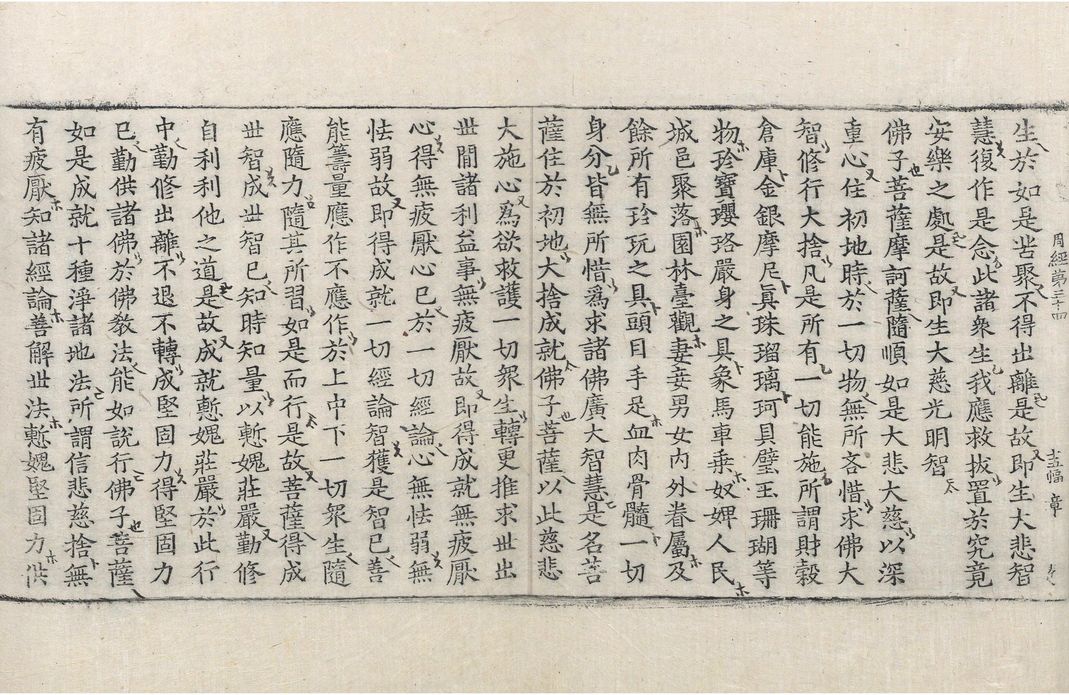 周經第三十四 十五幅 章
生於如是苦聚不得出離是故即生大悲智
慧復作是念此諸衆生我應救拔置於究竟
安樂之處是故即生大慈光明智
佛子菩薩摩訶薩隨順如是大悲大慈以深
重心住初地時於一切物無所吝惜求佛大
智修行大捨凡是所有一切能施所謂財穀
倉庫金銀摩尼眞珠瑠璃珂貝璧玉珊瑚等
物珍寶瓔珞嚴身之具象馬車乘奴婢人民
城邑聚落園林臺觀妻妾男女內外眷屬及
餘所有珍玩之具頭目手足血肉骨髓一切
身分皆無所惜爲求諸佛廣大智慧是名菩
薩住於初地大捨成就佛子菩薩以此慈悲
大施心爲欲救護一切衆生轉更推求世出
世間諸利益事無疲厭故即得成就無疲厭
心得無疲厭心已於一切經論心無怯弱無
怯弱故即得成就一切經論智獲是智已善
能籌量應作不應作於上中下一切衆生隨
應隨力隨其所習如是而行是故菩薩得成
世智成世智已知時知量以慙媿莊嚴勤修
自利利他之道是故成就慙媿莊嚴於此行
中勤修出離不退不轉成堅固力得堅固力
已勤供諸佛於佛教法能如說行佛子菩薩
如是成就十種淨諸地法所謂信悲慈捨無
有疲厭知諸經論善解世法慙媿堅固力供